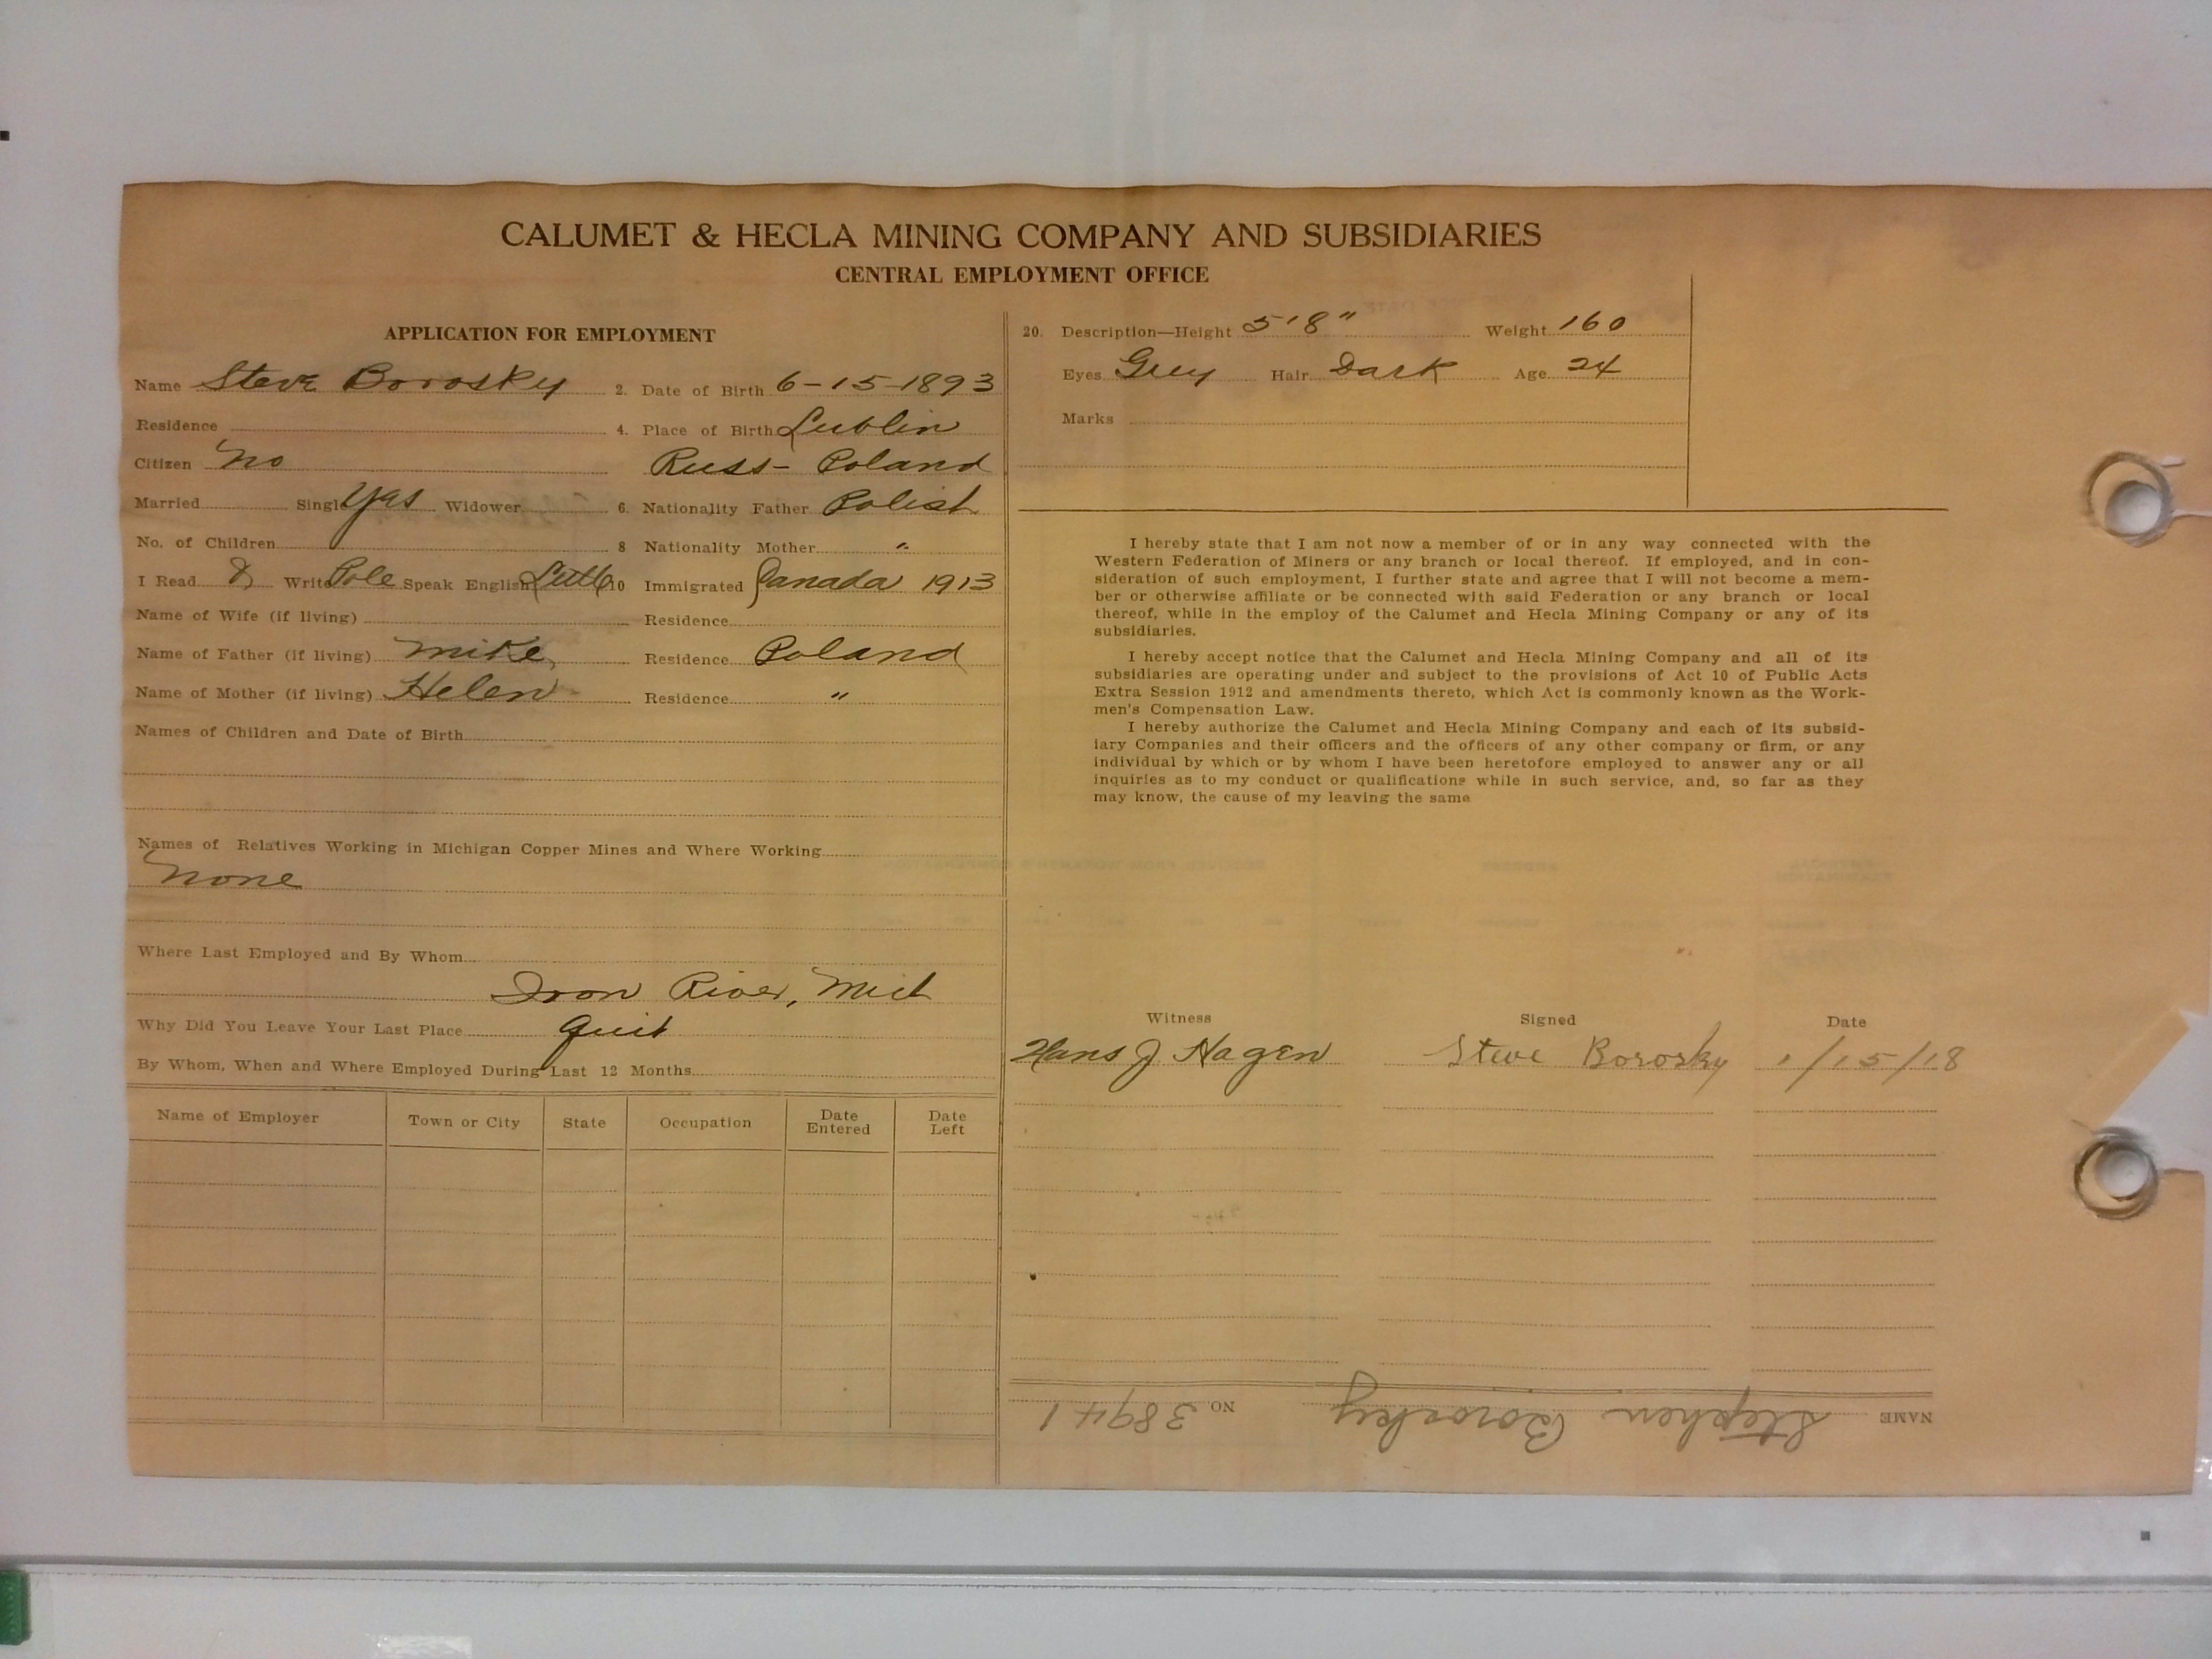 CALUMET & HECLA MINING COMPANY AND SUBSIDIARIES
CENTRAL EMPLOYMENT OFFICE
APPLICATION FOR EMPLOYMENT
Name Steve Borosky 2. Date of Birth 6-15-1893
Residence 4. Place of Birth Lublin
Citizen No Russ- Poland
Married Single Yes Widower 6. Nationality Father Polish
No. of Children 8 Nationality Mother "
I Read & Write Pole Speak English Little 10 Immigrated Canada 1913
Name of Wife (if living) Residence
Name of Father (if living) Mike Residence Poland
Name of Mother (if living) Helen Residence "
Names of Children and Date of Birth
Names of Relatives Working in Michigan Copper Mines and Where Working
None
Where Last Employed and By Whom
Iron River, Mich
Why Did You Leave Your Last Place Quit
By Whom, When and Where Employed During Last 12 Months
Name of Employer Town or City State Occupation Date Entered Date Left
20. Description—Height 5'8" Weight 160
Eyes Grey Hair Dark Age 24
Marks
I hereby state that I am not now a member of or in any way connected with the
Western Federation of Miners or any branch or local thereof. If employed, and in con-
sideration of such employment, I further state and agree that I will not become a mem-
ber or otherwise affiliate or be connected with said Federation or any branch or local
thereof, while in the employ of the Calumet and Hecla Mining Company or any of its
subsidiaries.
I hereby accept notice that the Calumet and Hecla Mining Company and all of its
subsidiaries are operating under and subject to the provisions of Act 10 of Public Acts
Extra Session 1912 and amendments thereto, which Act is commonly known as the Work-
men's Compensation Law.
I hereby authorize the Calumet and Hecla Mining Company and each of its subsid-
iary Companies and their officers and the officers of any other company or firm, or any
individual by which or by whom I have been heretofore employed to answer any or all
inquiries as to my conduct or qualifications while in such service, and, so far as they
may know, the cause of my leaving the same
Witness Signed Date
Hans J Hagen Steve Borosky 1/15/18
NAME Stephen Borosky NO 38941